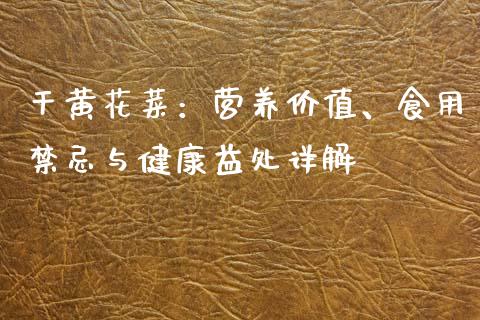 干黄花菜：营养价值、食用
禁忌与健康益处详解